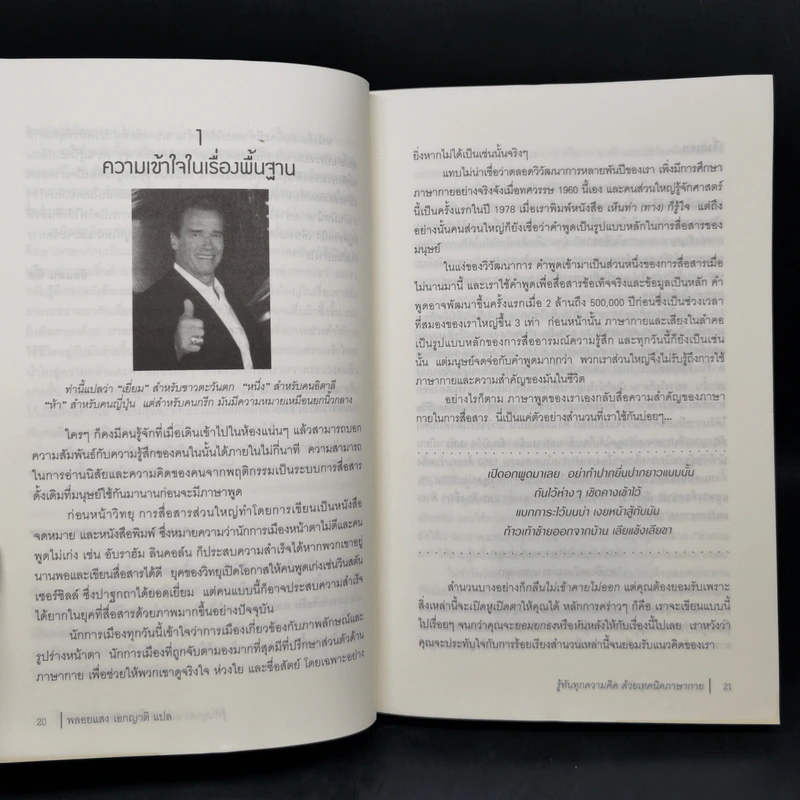 1
ความเข้าใจในเรื่องพื้นฐาน
ท่านี้แปลว่า “เยี่ยม” สำหรับชาวตะวันตก “หนึ่ง” สำหรับคนอิตาลี
“ห้า” สำหรับคนญี่ปุ่น แต่สำหรับคนกรีก มันมีความหมายเหมือนยกนิ้วกลาง
ใครๆ ก็คงมีคนรู้จักที่เมื่อเดินเข้าไปในห้องแน่นๆ แล้วสามารถบอก
ความสัมพันธ์กับความรู้สึกของคนในนั้นได้ภายในไม่กี่นาที ความสามารถ
ในการอ่านนิสัยและความคิดของคนจากพฤติกรรมเป็นระบบการสื่อสาร
ดั้งเดิมที่มนุษย์ใช้กันมานานก่อนจะมีภาษาพูด
ก่อนหน้าวิทยุ การสื่อสารส่วนใหญ่ทำโดยการเขียนเป็นหนังสือ
จดหมาย และหนังสือพิมพ์ ซึ่งหมายความว่านักการเมืองหน้าตาไม่ดีและคน
พูดไม่เก่ง เช่น อับราฮัม ลินคอล์น ก็ประสบความสำเร็จได้หากพวกเขาอยู่
นานพอและเขียนสื่อสารได้ดี ยุคของวิทยุเปิดโอกาสให้คนพูดเก่งเช่นวินสตัน
เชอร์ชิลล์ ซึ่งปาฐกถาได้ยอดเยี่ยม แต่คนแบบนี้ก็อาจประสบความสำเร็จ
ได้ยากในยุคที่สื่อสารด้วยภาพมากขึ้นอย่างปัจจุบัน
นักการเมืองทุกวันนี้เข้าใจว่าการเมืองเกี่ยวข้องกับภาพลักษณ์และ
รูปร่างหน้าตา นักการเมืองที่ถูกจับตามองมากที่สุดมีที่ปรึกษาส่วนตัวด้าน
ภาษากาย เพื่อช่วยให้พวกเขาดูจริงใจ ห่วงใย และซื่อสัตย์ โดยเฉพาะอย่าง
20 | พลอยแสง เอกญาติ แปล
ยิ่งหากไม่ได้เป็นเช่นนั้นจริงๆ
แทบไม่น่าเชื่อว่าตลอดวิวัฒนาการหลายพันปีของเรา เพิ่งมีการศึกษา
ภาษากายอย่างจริงจังเมื่อทศวรรษ 1960 นี้เอง และคนส่วนใหญ่รู้จักศาสตร์
นี้เป็นครั้งแรกในปี 1978 เมื่อเราพิมพ์หนังสือ เห็นท่า (ทาง) ก็รู้ใจ แต่ถึง
อย่างนั้นคนส่วนใหญ่ก็ยังเชื่อว่าคำพูดเป็นรูปแบบหลักในการสื่อสารของ
มนุษย์
ในแง่ของวิวัฒนาการ คำพูดเข้ามาเป็นส่วนหนึ่งของการสื่อสารเมื่อ
ไม่นานมานี้ และเราใช้คำพูดเพื่อสื่อสารข้อเท็จจริงและข้อมูลเป็นหลัก คำ
พูดอาจพัฒนาขึ้นครั้งแรกเมื่อ 2 ล้านถึง 500,000 ปีก่อนซึ่งเป็นช่วงเวลา
ที่สมองของเราใหญ่ขึ้น 3 เท่า ก่อนหน้านั้น ภาษากายและเสียงในลำคอ
เป็นรูปแบบหลักของการสื่ออารมณ์ความรู้สึก และทุกวันนี้ก็ยังเป็นเช่น
นั้น แต่มนุษย์จดจ่อกับคำพูดมากกว่า พวกเราส่วนใหญ่จึงไม่รับรู้ถึงการใช้
ภาษากายและความสำคัญของมันในชีวิต
อย่างไรก็ตาม ภาษาพูดของเราเองกลับสื่อความสำคัญของภาษา
กายในการสื่อสาร นี่เป็นแค่ตัวอย่างสำนวนที่เราใช้กันบ่อยๆ...
เปิดอกพูดมาเลย อย่าทำปากยื่นปากยาวแบบนั้น
กันไว้ห่างๆ เชิดคางเข้าไว้
แบกภาระไว้บนบ่า เงยหน้าสู้กับมัน
ก้าวเท้าซ้ายออกจากบ้าน เลียแข้งเลียขา
สำนวนบางอย่างก็กลืนไม่เข้าคายไม่ออก แต่คุณต้องยอมรับเพราะ
สิ่งเหล่านี้จะเปิดหูเปิดตาให้คุณได้ หลักการคร่าวๆ ก็คือ เราจะเขียนแบบนี้
ไปเรื่อยๆ จนกว่าคุณจะยอมยกธงหรือหันหลังให้กับเรื่องนี้ไปเลย เราหวังว่า
คุณจะประทับใจกับการร้อยเรียงสำนวนเหล่านี้จนยอมรับแนวคิดของเรา
รู้ทันทุกความคิด ด้วยเทคนิคภาษากาย | 21